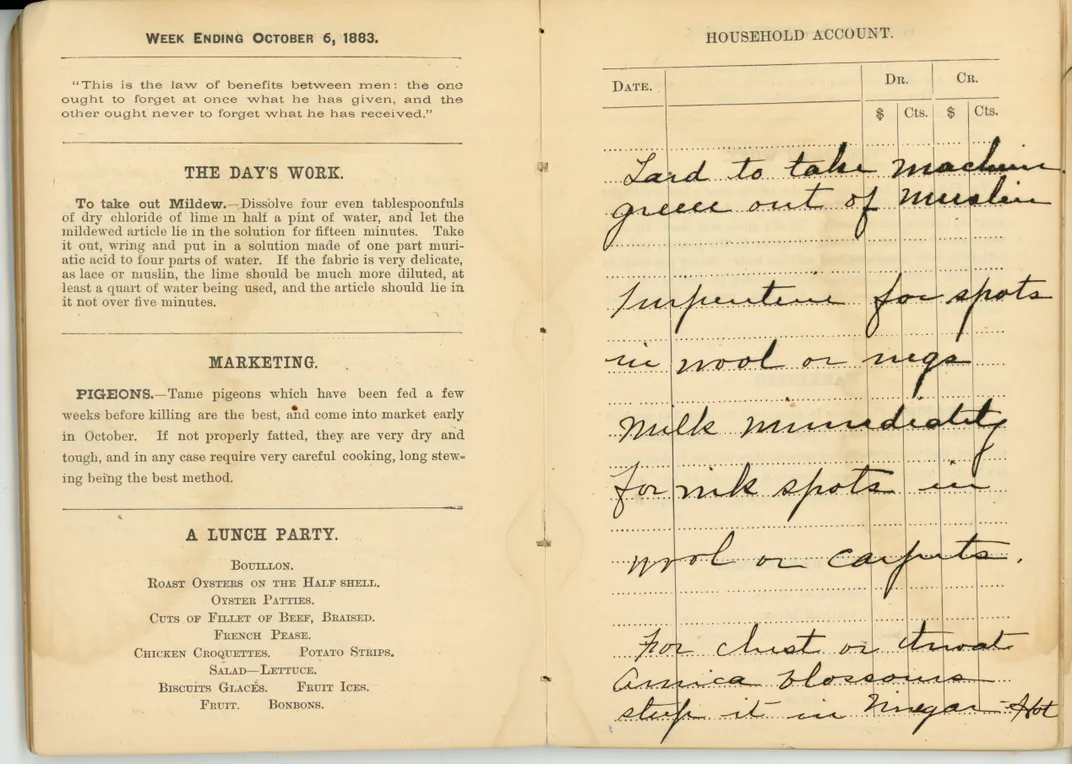 WEEK ENDING OCTOBER 6, 1883.
"This is the law of benefits between men: the one
ought to forget at once what he has given, and the
other ought never to forget what he has received."
THE DAY'S WORK.
To take out Mildew.—Dissolve four even tablespoonfuls
of dry chloride of lime in half a pint of water, and let the
mildewed article lie in the solution for fifteen minutes. Take
it out, wring and put in a solution made of one part muri-
atic acid to four parts of water. If the fabric is very delicate,
as lace or muslin, the lime should be much more diluted, at
least a quart of water being used, and the article should lie in
it not over five minutes.
MARKETING.
PIGEONS.—Tame pigeons which have been fed a few
weeks before killing are the best, and come into market early
in October. If not properly fatted, they are very dry and
tough, and in any case require very careful cooking, long stew-
ing being the best method.
A LUNCH PARTY.
BOUILLON.
ROAST OYSTERS ON THE HALF SHELL.
OYSTER PATTIES.
CUTS OF FILLET OF BEEF, BRAISED.
FRENCH PEASE.
CHICKEN CROQUETTES. POTATO STRIPS.
SALAD—LETTUCE.
BISCUITS GLACÉS. FRUIT ICES.
FRUIT. BONBONS.
HOUSEHOLD ACCOUNT.
DATE. DR. CR.
$ Cts. $ Cts.
Lard to take machine
out of muslin
Turpentine for spots
in wool or rugs
Milk immediately
for ink spots in
wool or carpets.
For chest or throat
Arnica blossoms
steep it in Vinegar - Hot